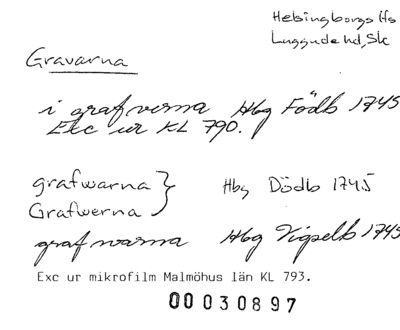 Helsingborgs lfs
Luggude hd, Sk
Gravarna
i grafverna Hbg Födb 1745
Exc ur KL 790.
grafwarna } Hbg Dödb 1745
Grafwerna
grafwarna Hbg Vigselb 1745
Exc ur mikrofilm Malmöhus län KL 793.
00030897